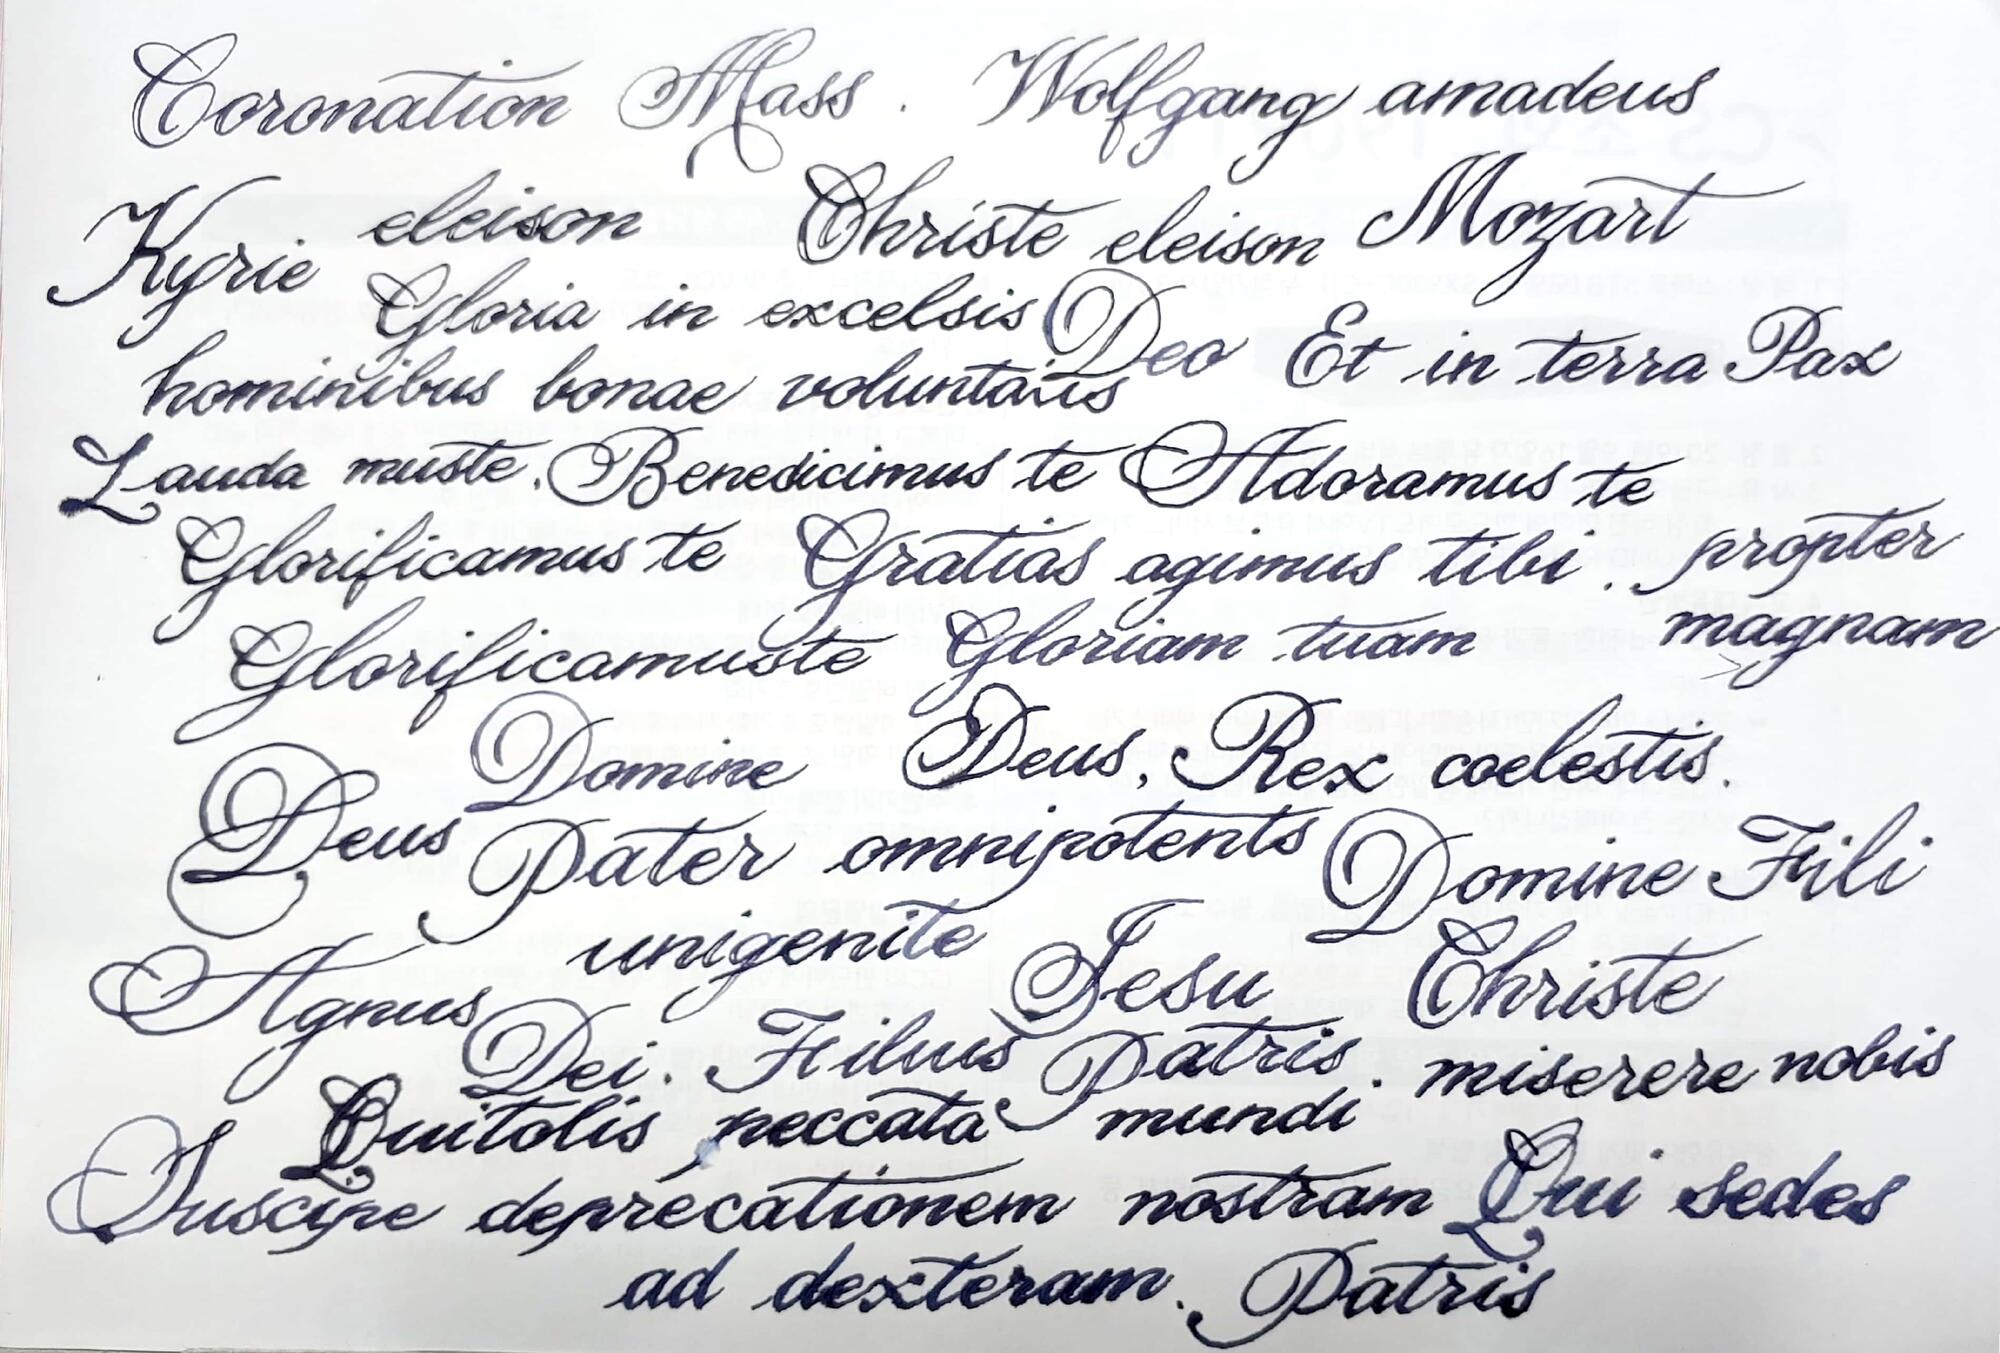 Coronation Mass . Wolfgang amadeus
Mozart
Kyrie eleison Christe eleison
Gloria in excelsis Deo Et in terra Pax
hominibus bonae voluntatis
Lauda muste . Benedicimus te Adoramus te
Glorificamus te Gratias agimus tibi . propter
magnam
Glorificamuste Gloriam tuam
Domine Deus, Rex coelestis.
Deus Pater omnipotents Domine Fili
unigenite Jesu Christe
Agnus Dei . Filius Patris . miserere nobis
Quitolis peccata mundi
Suscipe deprecationem nostram Qui sedes
ad dexteram . Patris